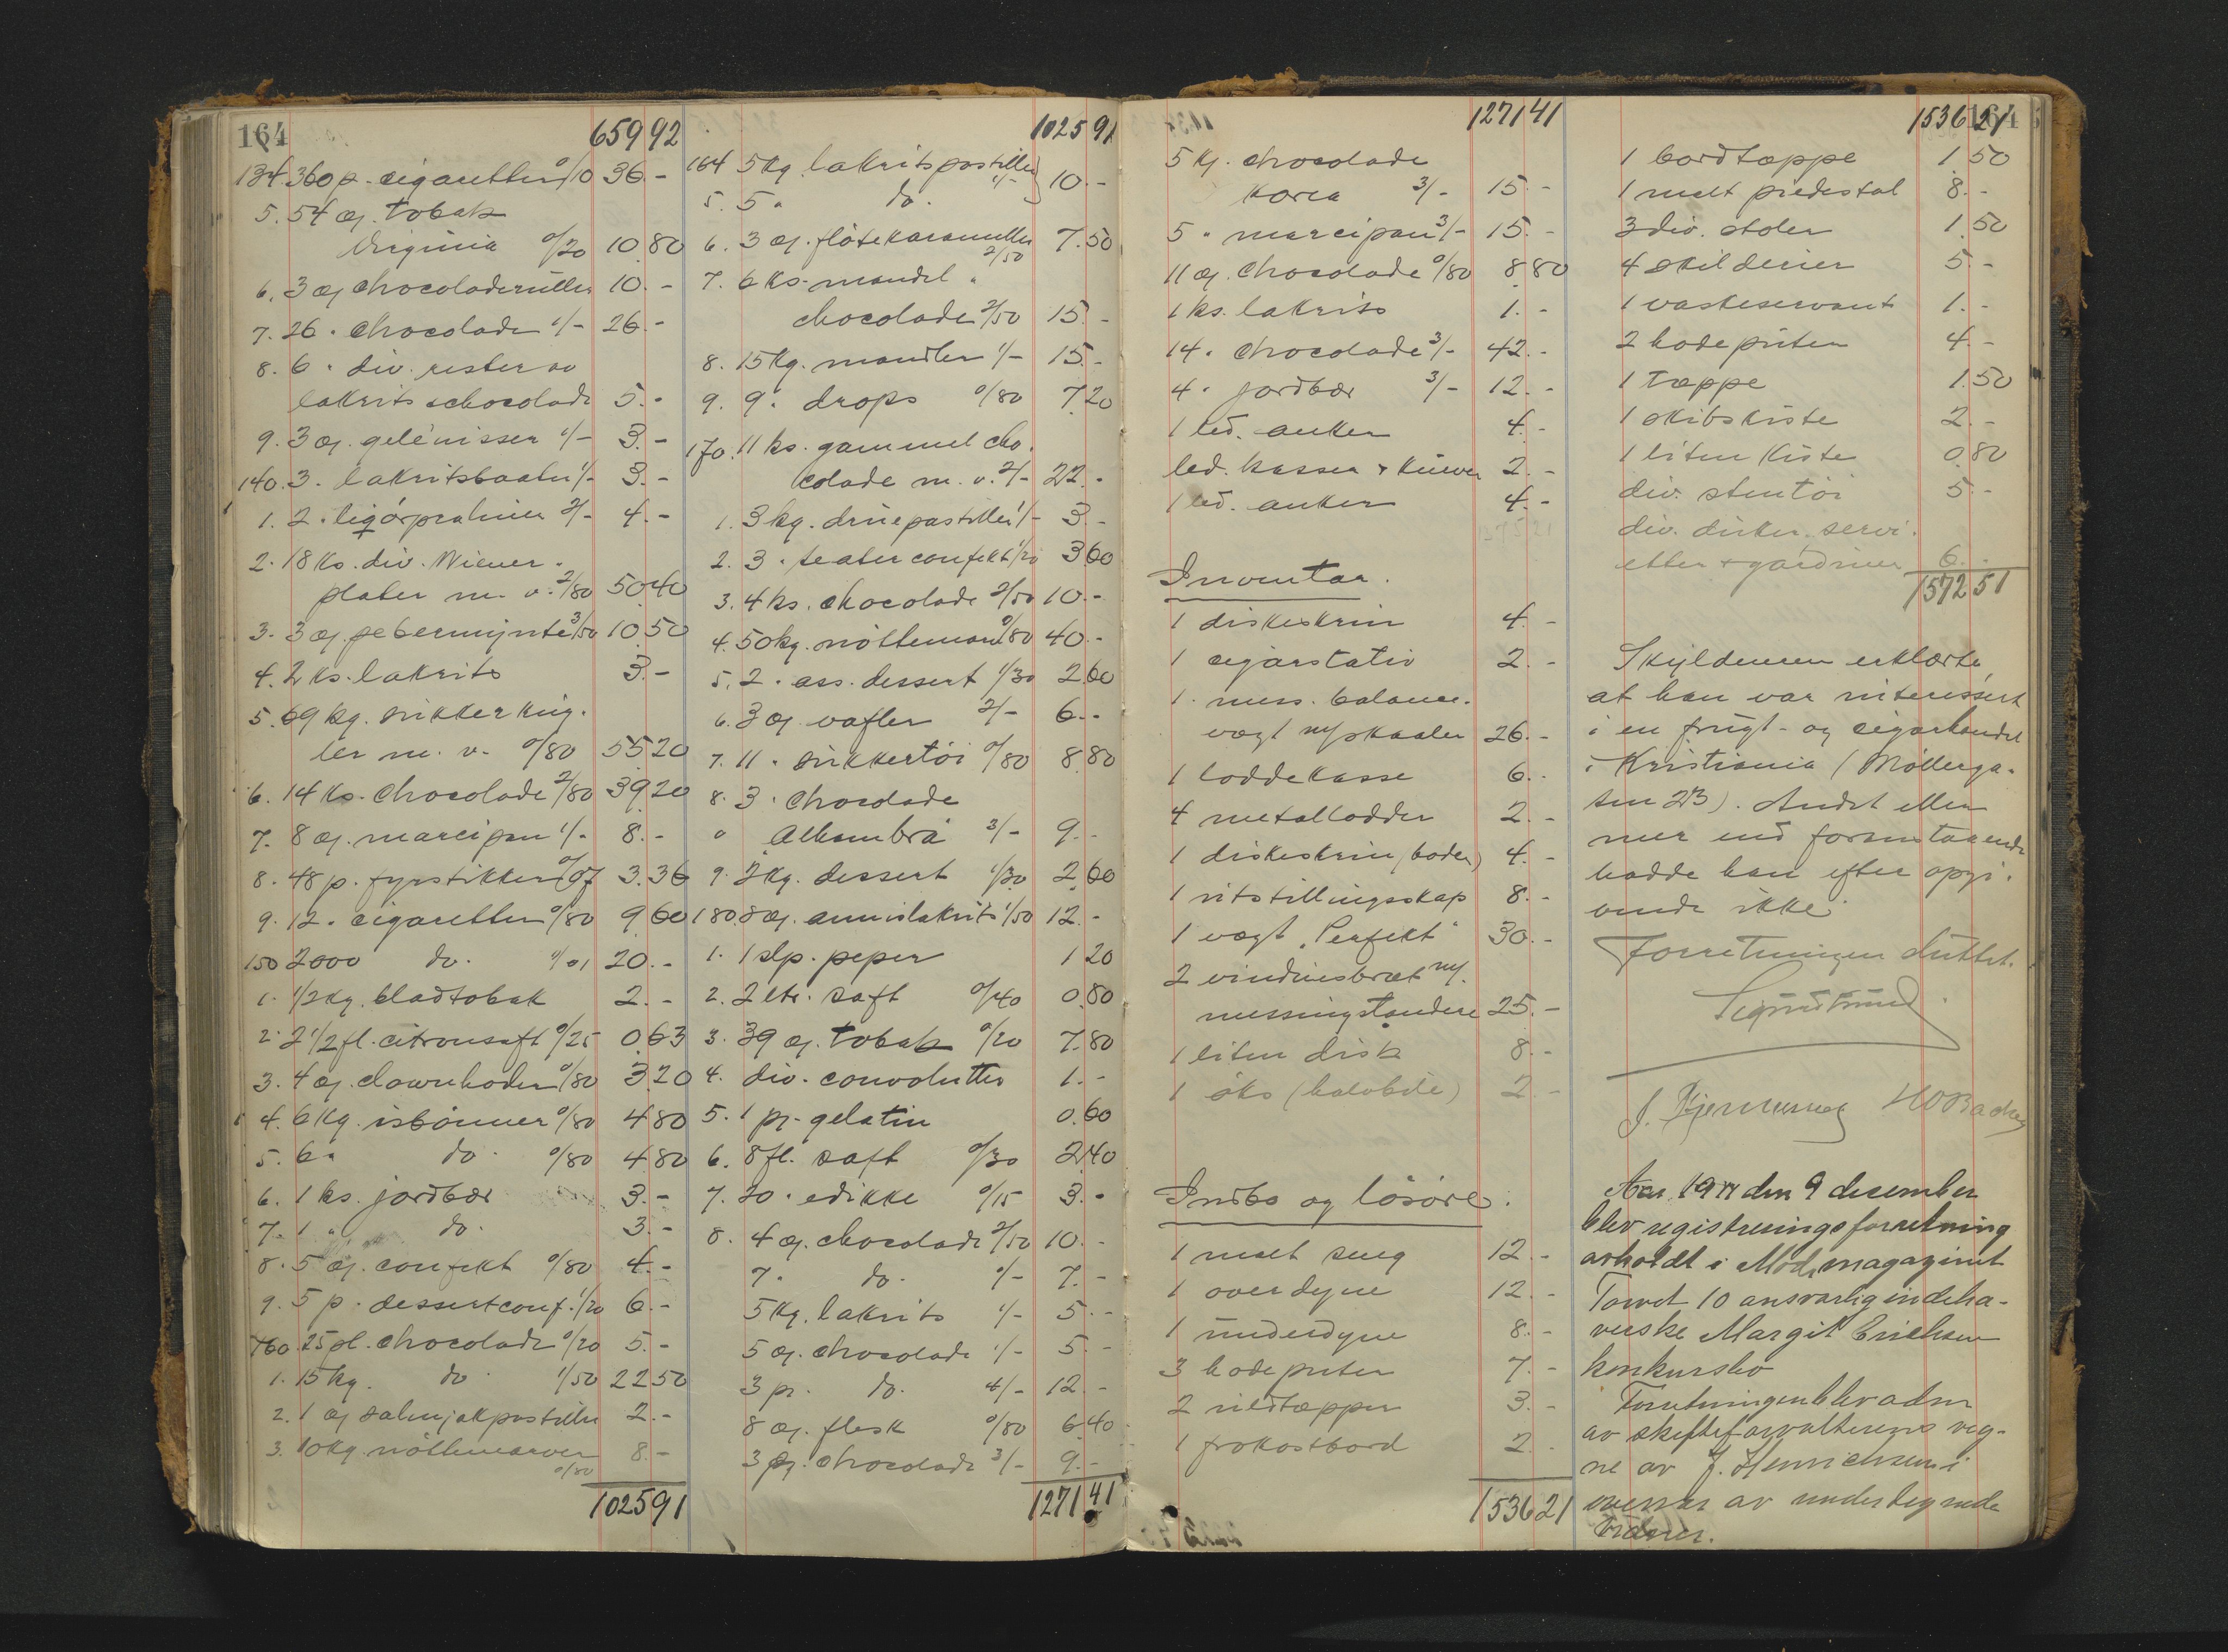 164
659 92
134. 360 p. cigaretter 0/10 36.-
5. 54 æ. tobak
Virginia 0/20 10.80
6. 3 æ chocoladeruller 10.-
7. 26 " chocolade 1/- 26.-
8. 6 " div. rester av
lakrits schocolade 5.-
9. 3 æ. gelénisser 1/- 3.-
140. 3 " lakritsbaater 1/- 3.-
1. 2 " liqórpraliner 2/- 4.-
2. 18 ks. div. Wiener-
plater m. v. 2/80 50.40
3. 3 æ. pebermynte 3/50 10.50
4. 2 ks. lakrits 3.-
5. 69 kg. sukkerkug-
ler m. v. 0/80 55.20
6. 14 ks. chocolade 2/80 39.20
7. 8 æ. marcipan 1/- 8.-
8. 48 p. fyrstikker 0/07 3.36
9. 12 " cigaretter 0/80 9.60
150 2000 do. 0/01 20.-
1. 1/2 kg. bladtobak 2.-
2. 2 1/2 fl. citronsaft 0/25 0.63
3. 4 æ. clownhoder 0/80 3.20
4. 6 kg. isbönner 0/80 4.80
5. 6 " do. 0/80 4.80
6. 1 ks. jordbær 3.-
7. 1 " do. 3.-
8. 5 æ. confekt 0/80 4.-
9. 5 p. dessertconf. 1/20 6.-
160. 25 pl. chocolade 0/20 5.-
1. 15 kg. do. 1/50 22.50
2. 1 æ salmjakpastiller 2.-
3. 10 kg. nöttemarver
0/80 8.-
1025 91
1025 91
164 5 kg. lakritspastiller
5. 5 " do. 1/- 10.-
6. 3 æ. flötekarameller
2/50 7.50
7. 6 ks. mandel-
chocolade 2/50 15.-
8. 15 kg. mandler 1/- 15.-
9. 9 " drops 0/80 7.20
170. 11 ks. gammel cho-
colade m. v. 2/- 22.-
1. 3 kg. druepastiller 1/- 3.-
2. 3 " teaterconfekt 1/20 3.60
3. 4 ks. chocolade 2/50 10.-
4. 50 kg. nöttemarv 0/80 40.-
5. 2 " ass. dessert 1/30 2.60
6. 3 æ. vafler 2/- 6.-
7. 11 " sukkertöi 0/80 8.80
8. 3 " chocolade
Alhambra 3/- 9.-
9. 2 kg. dessert 1/30 2.60
180. 8 æ. annislakrits 1/50 12.-
1. 1 slp. peper 1.20
2. 2 ltr. saft 0/40 0.80
3. 39 æ. tobak 0/20 7.80
4. div. convolutter 1.-
5. 1 p. gelatin 0.60
6. 8 fl. saft 0/30 2.40
7. 20 " edikke 0/15 3.-
8. 4 æ. chocolade 2/50 10.-
7 " do. 1/- 7.-
5 kg. lakrits 1/- 5.-
5 æ. chocolade 1/- 5.-
3 p. do. 4/- 12.-
8 æ. flesk 0/80 6.40
3 p. chocolade 3/- 9.-
1271 41
1271 41
5 kg. chocolade
Korea 3/- 15.-
5 " marcipan 3/- 15.-
11 æ. chocolade 0/80 8.80
1 ks. lakrits 1.-
14 " chocolade 3/- 42.-
4 " jordbær 3/- 12.-
1 led. anker 4.-
led. kasser & kurver 2.-
1 led. anker 4.-
Inventar.
1 diskeskrin 4.-
1 cigarstativ 2.-
1 mess. balance-
vægt m/skaaler 26.-
1 loddekasse 6.-
4 metallodder 2.-
1 diskeskrin (boden) 4.-
1 utstillingsskap 8.-
1 vægt "Perfekt" 30.-
2 vinduesbræt m/
messingstandere 25.-
1 liten disk 8.-
1 öks (halvbile) 2.-
Indbo og lösöre:
1 malt seng 12.-
1 overdyne 12.-
1 underdyne 8.-
3 hodeputer 7.-
2 uldtæpper 3.-
1 frokostbord 2.-
1536 21
1536 21
164
1 bordtæppe 1.50
1 malt piedestal 8.-
3 div. stoler 1.50
4 skilderier 5.-
1 vaskeservant 1.-
2 hodeputer 4.-
1 tæppe 1.50
1 skibskiste 2.-
1 liten kiste 0.80
div. stentöi 5.-
div. duker, servi-
etter & gardiner 6.-
1572 51
Skyldneren erklærte,
at han var interessert
i en frugt- og cigarhandel
i Kristiania (Möllerga-
ten 23). Andet eller
mer end forannævnte
hadde han efter opgi-
vende ikke.
Forretningen sluttet.
Sigurd Trund
HO Backe
Aar 19 den 9 desember
blev registreringsforretning
avholdt i Modemagazinet
Torvet 10 ansvarlig indeha-
verske Margit Erichsen
konkursbo
Forretningen blev adm
av skifteforvalterens veg-
ne av J. Henrichsen i
overvær av undertegnede
vidner.